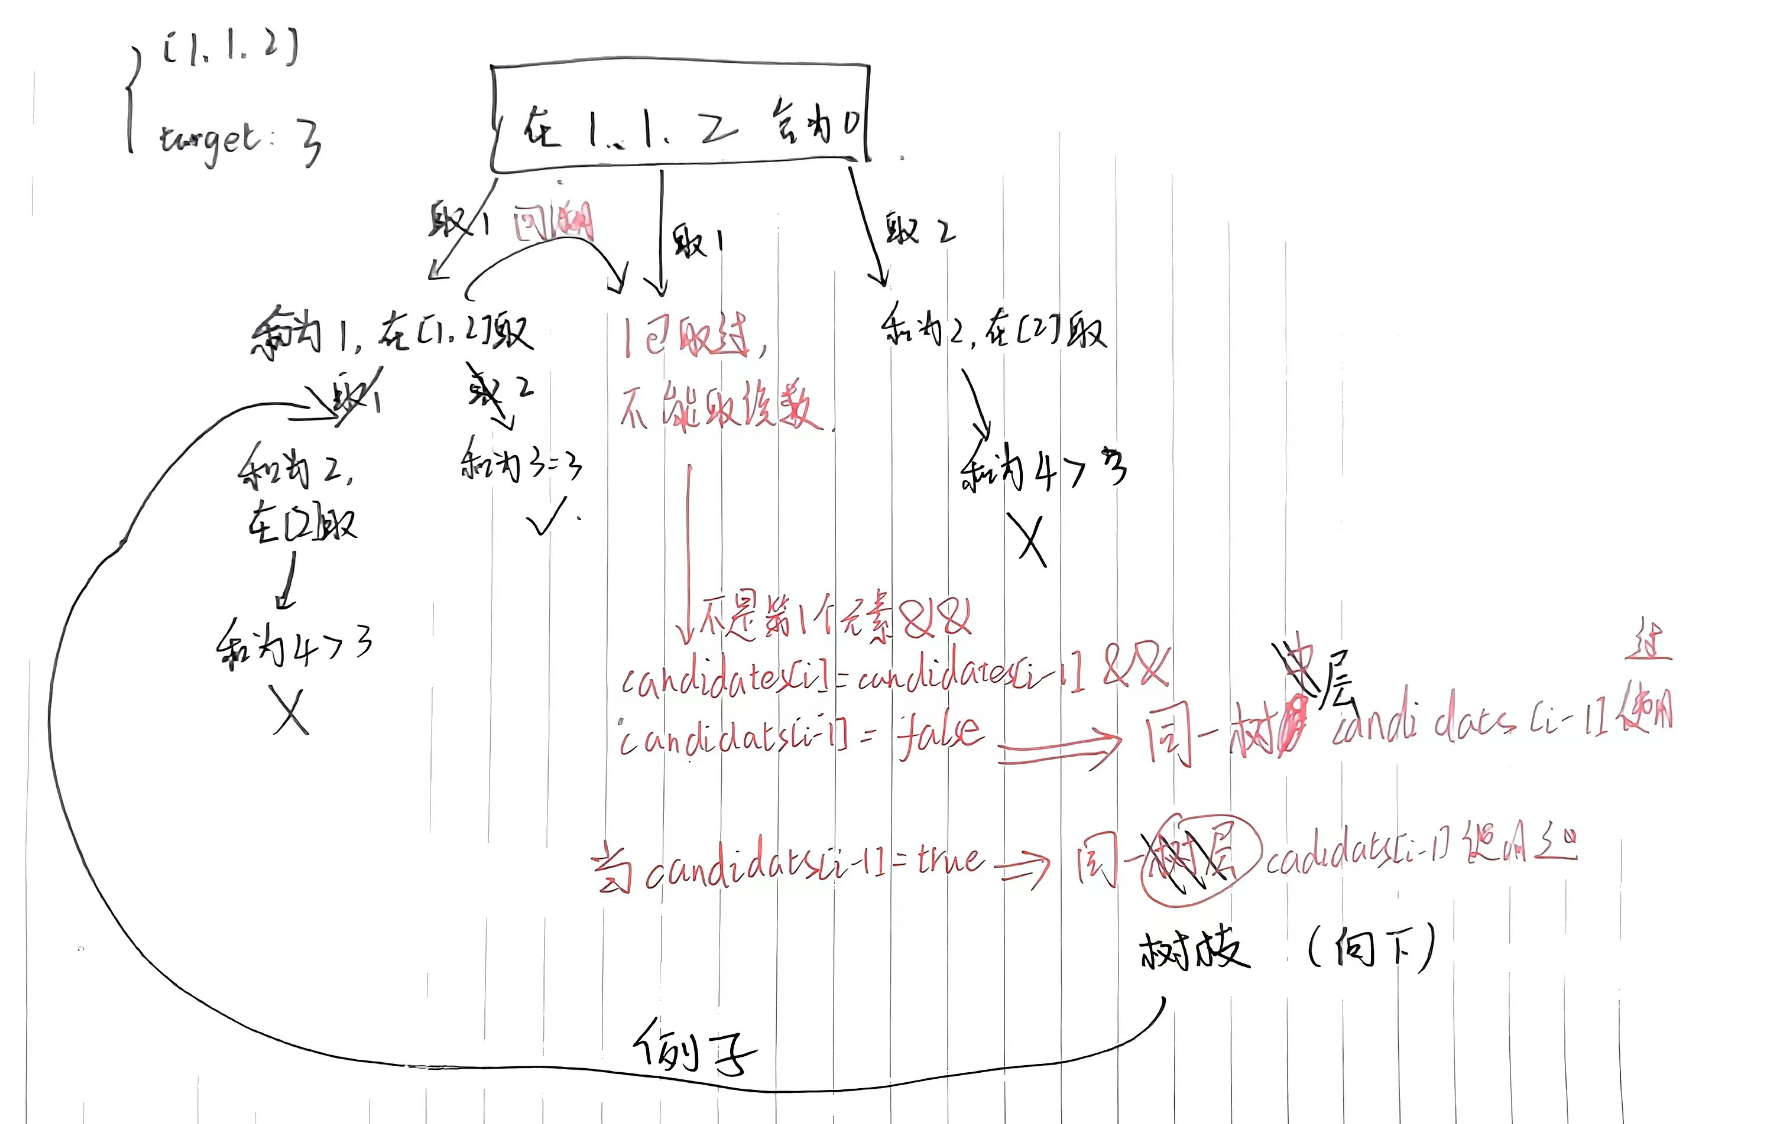 [1.1.2]
target: 3
在 1.1.2 合为0
取1
回溯
取1
取 2
和为1,在[1.2]取
1已取过,
不能取该数.
和为2,在[2]取
取1
取 2
和为2,
在[2]取
和为3=3
✓.
和为4>3
X
和为4>3
X
不是第1个元素&&
candidates[i]=candidates[i-1] &&
candidats[i-1]= false ⇒ 同一树层 candidats[i-1]使用过
当candidats[i-1]=true ⇒ 同一 cadidats[i-1]使用过
树枝 (向下)
例子